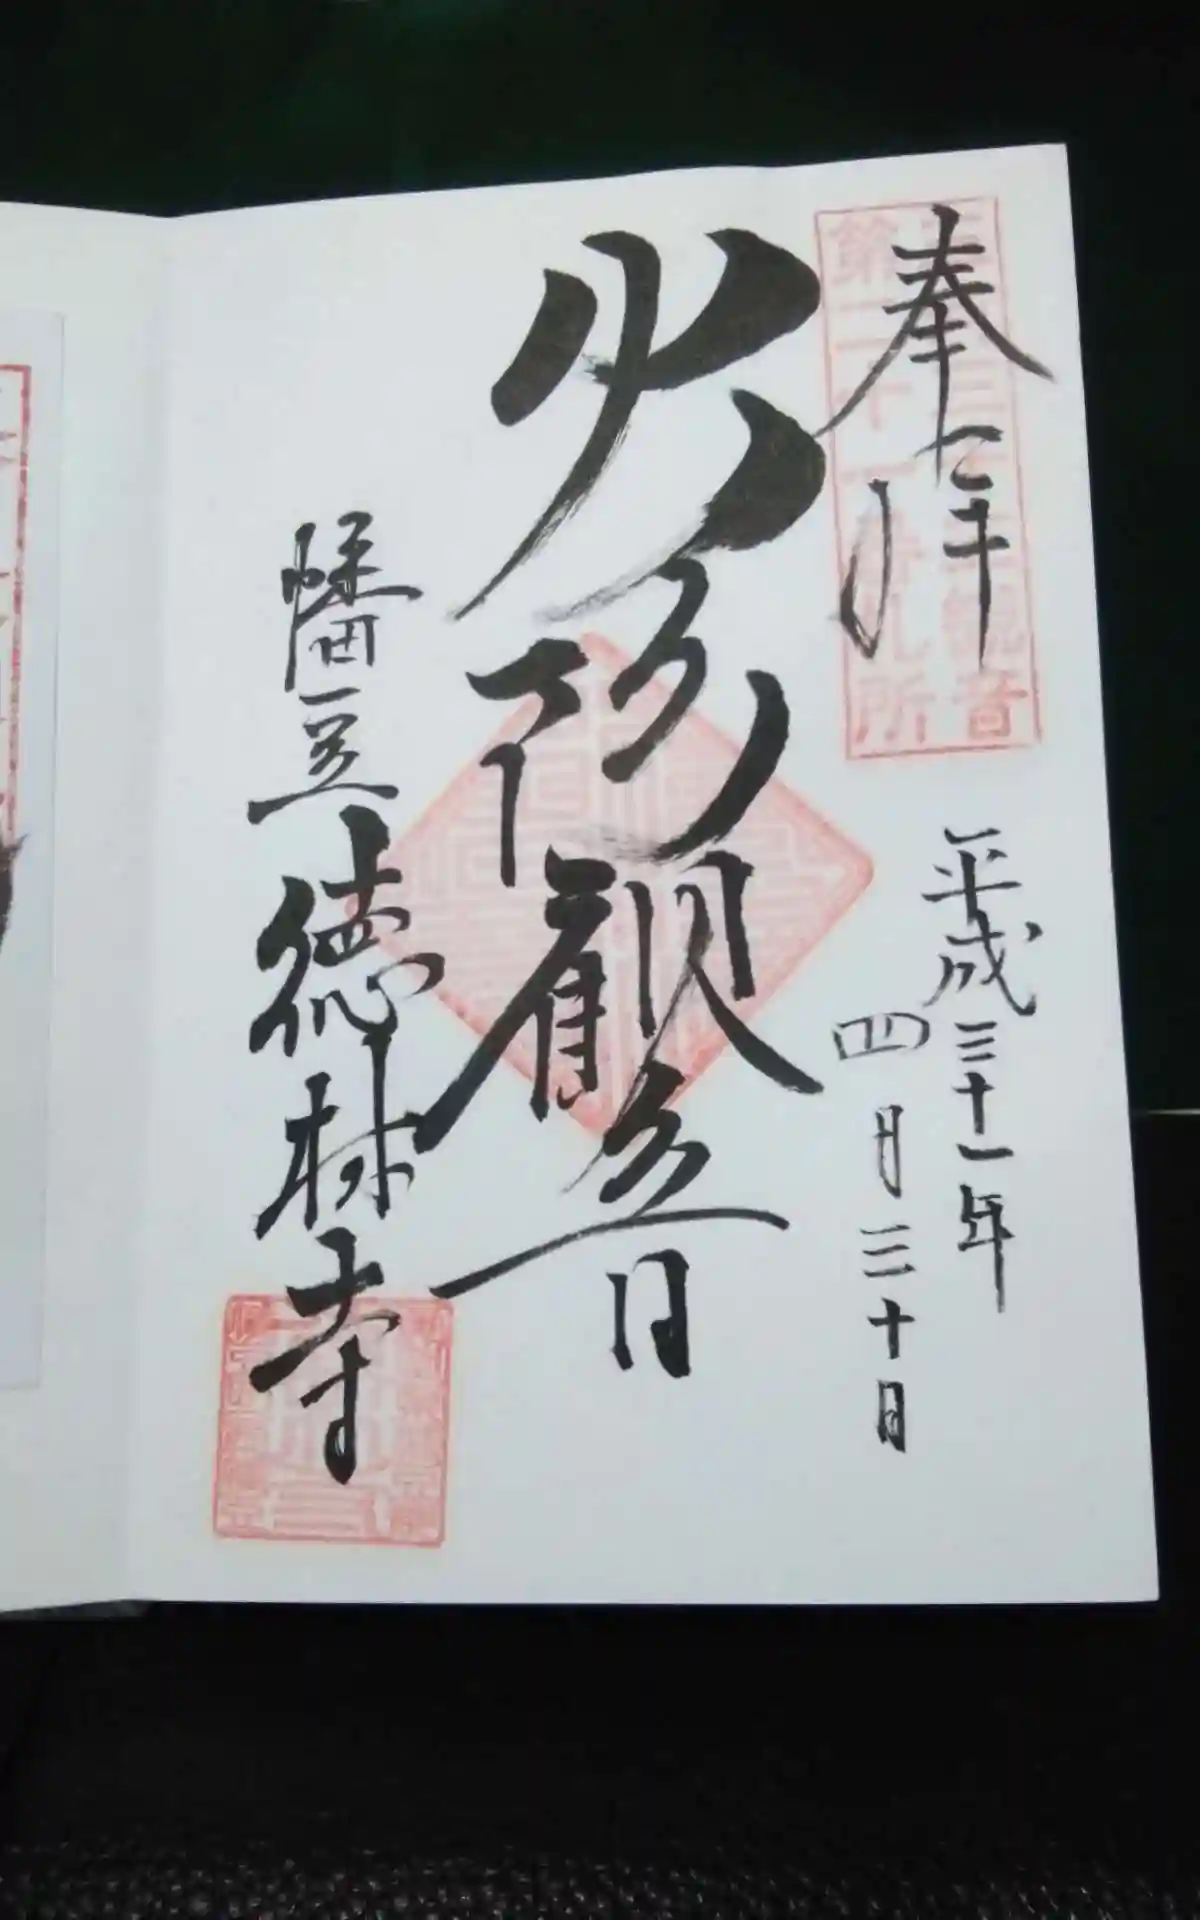 奉拝
三河三十三観音
第二十一番札所
平成三十一年
四月三十日
火防観音
幡豆 徳林寺